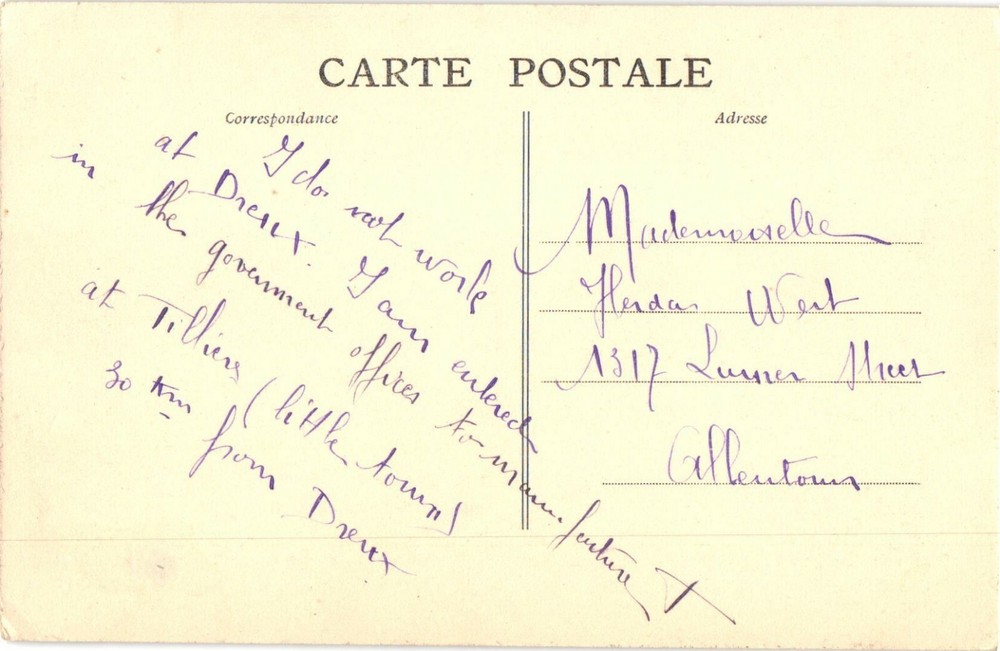 CARTE POSTALE
Correspondance
Adresse
I do not work
at Dreux. I am entered
in the government offices to manufacture
at Tilliers (little town)
30 Km from Dreux
Mademoiselle
Wert
1317 Street
Allentown